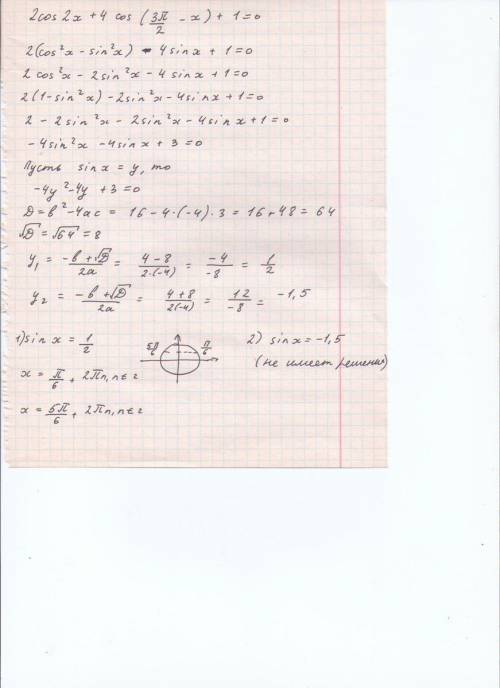 2cos2x + 4 cos (3π/2 - x) + 1 = 0
2(cos²x - sin²x) - 4 sinx + 1 = 0
2 cos²x - 2sin²x - 4 sinx + 1 = 0
2(1 - sin²x) - 2sin²x - 4sinx + 1 = 0
2 - 2sin²x - 2sin²x - 4sinx + 1 = 0
-4sin²x - 4sinx + 3 = 0
Пусть sinx = y, то
-4y² - 4y + 3 = 0
D = b² - 4ac = 16 - 4·(-4)·3 = 16 + 48 = 64
√D = √64 = 8
y₁ = -b + √D / 2a = 4 - 8 / 2·(-4) = -4 / -8 = 1/2
y₂ = -b + √D / 2a = 4 + 8 / 2(-4) = 12 / -8 = -1,5
1) sin x = 1/2
5π/6 π/6
2) sinx = -1,5
(не имеет решения)
x = π/6 + 2πn, n ∈ z
x = 5π/6 + 2πn, n ∈ z